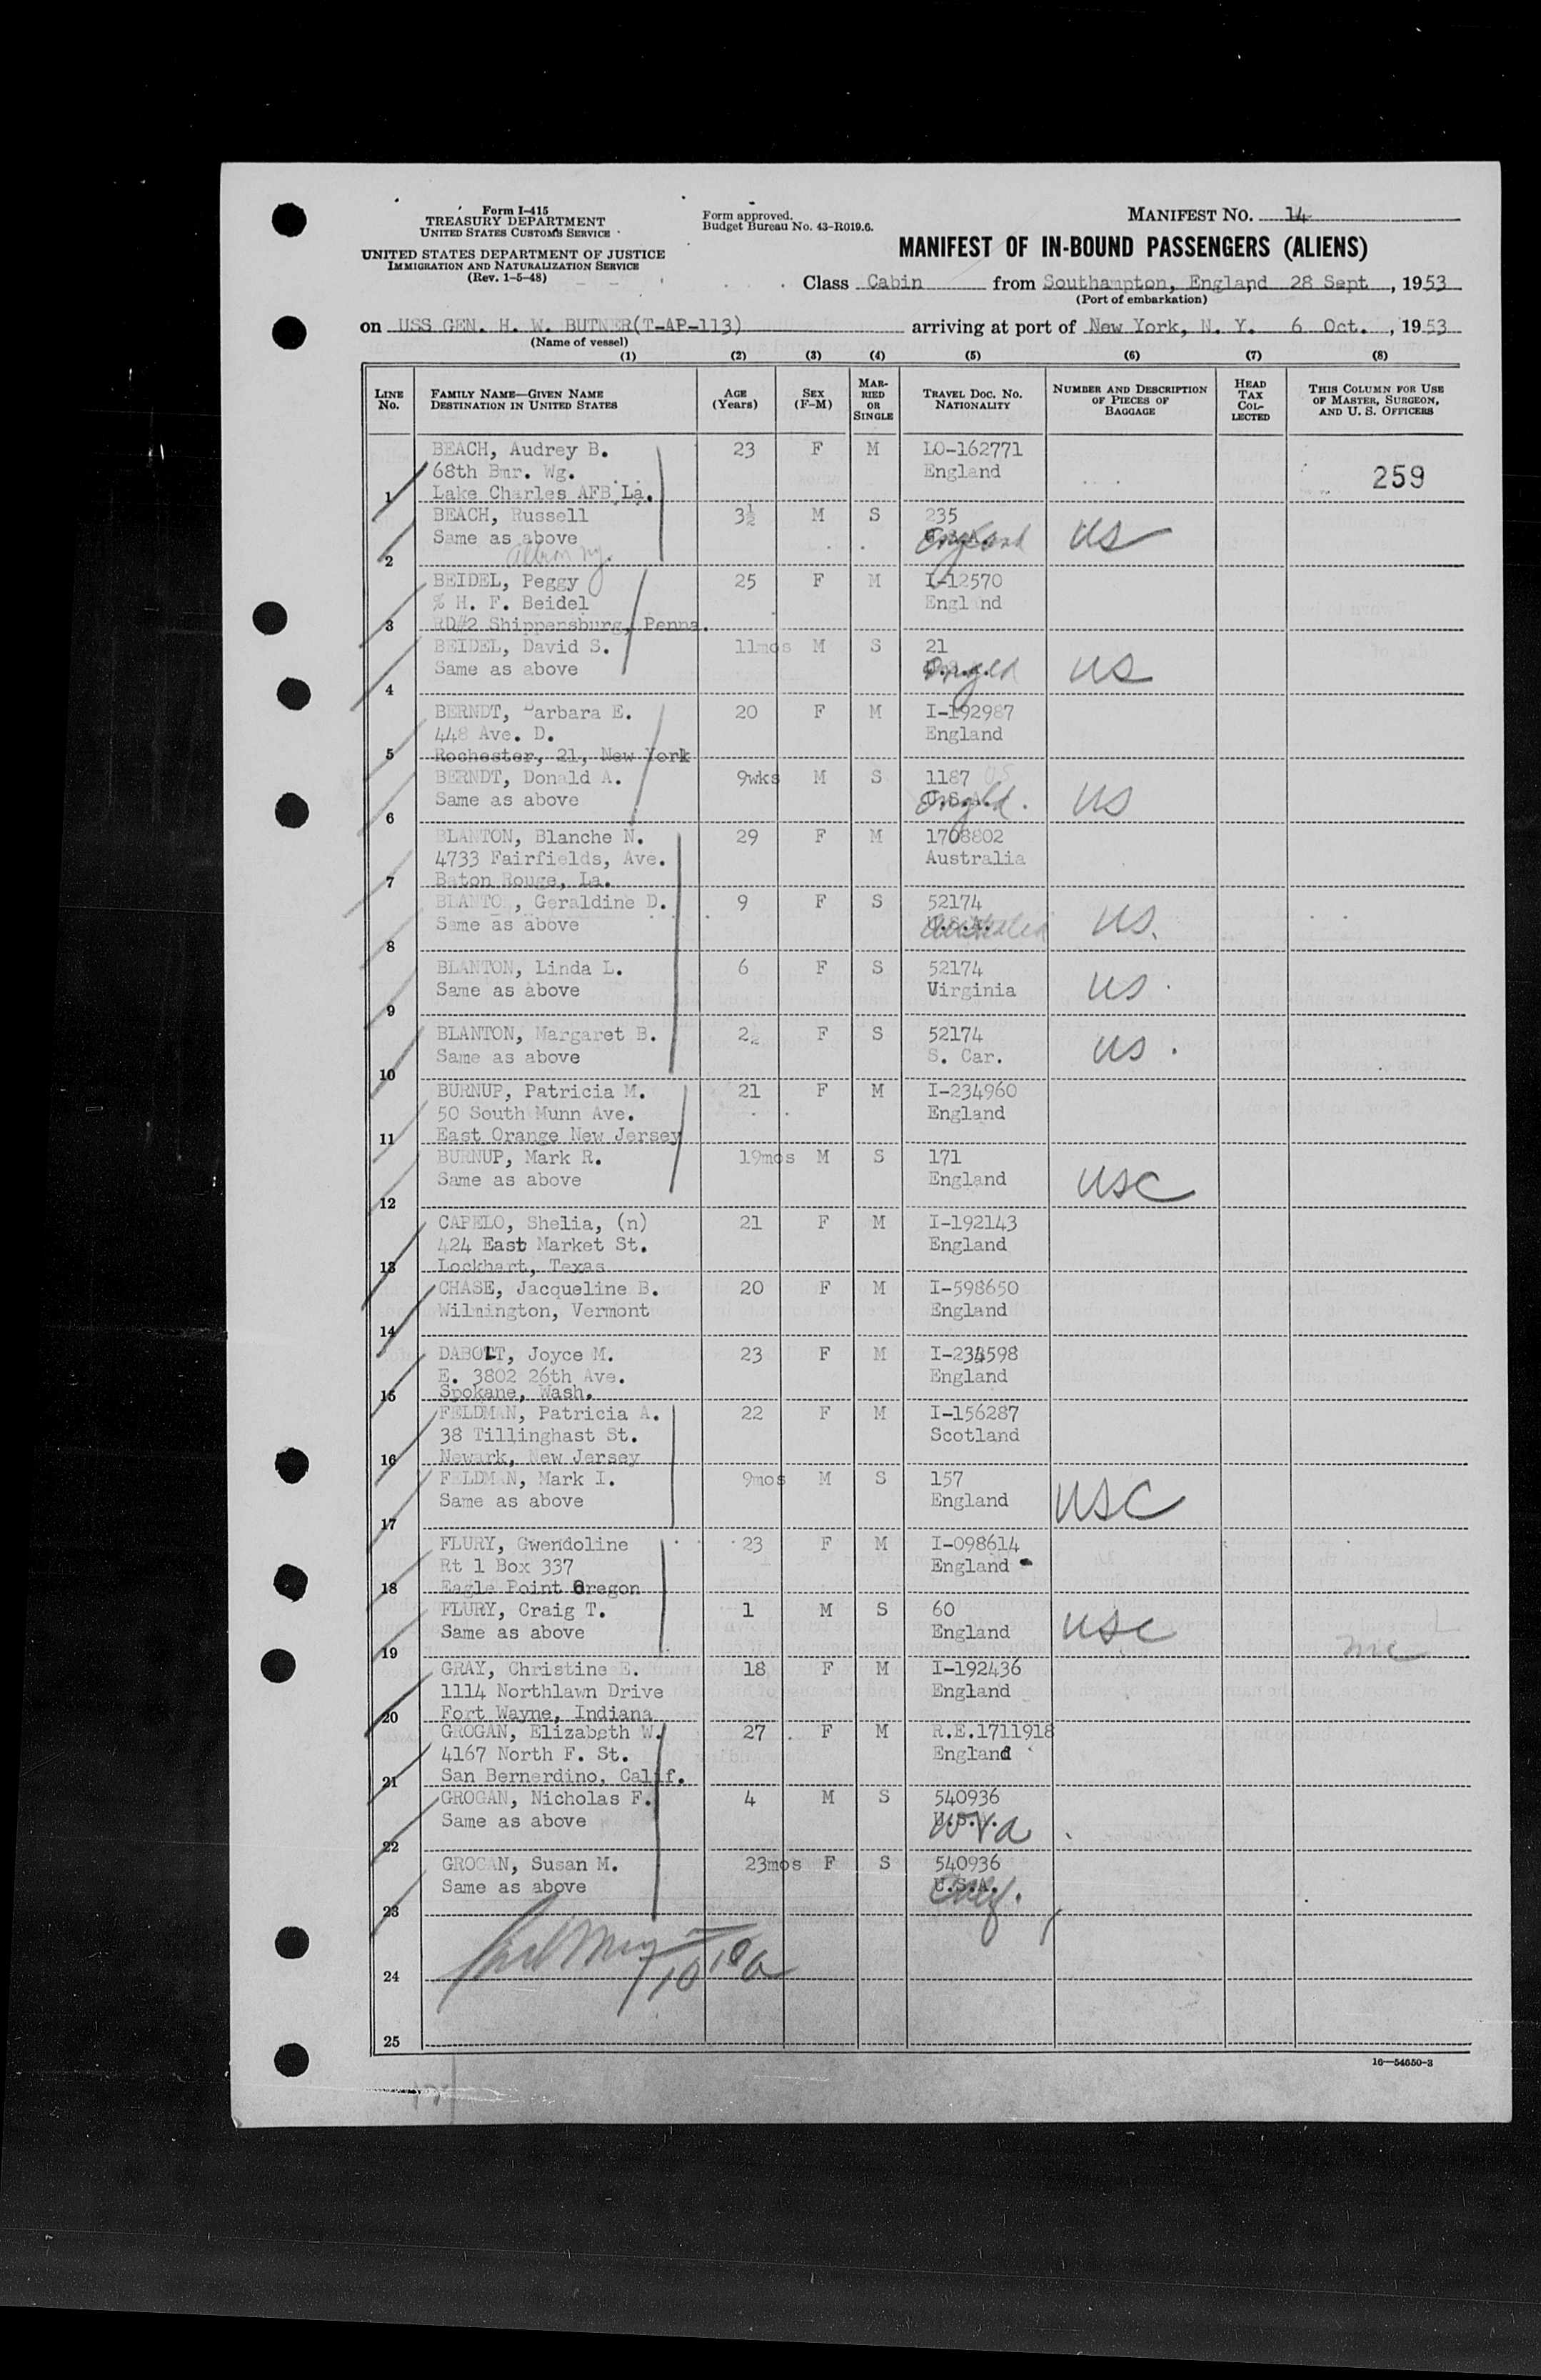 Form I-415
TREASURY DEPARTMENT
UNITED STATES CUSTOMS SERVICE
UNITED STATES DEPARTMENT OF JUSTICE
IMMIGRATION AND NATURALIZATION SERVICE
(Rev. 1-5-48)
Form approved.
Budget Bureau No. 43-R019.6.
MANIFEST NO. 14
MANIFEST OF IN-BOUND PASSENGERS (ALIENS)
Class Cabin from Southampton, England 28 Sept, 1953
(Port of embarkation)
on USS GEN. H. W. BUTNER(T-AP-113) arriving at port of New York, N. Y. 6 Oct., 1953
(Name of vessel)
(1) (2) (3) (4) (5) (6) (7) (8)
LINE No. FAMILY NAME—GIVEN NAME DESTINATION IN UNITED STATES AGE (Years) SEX (F-M) MARRIED OR SINGLE TRAVEL DOC. NO. NATIONALITY NUMBER AND DESCRIPTION OF PIECES OF BAGGAGE HEAD TAX COLLECTED THIS COLUMN FOR USE OF MASTER, SURGEON, AND U. S. OFFICERS
BEACH, Audrey B. 23 F M LO-162771
68th Bmr. Wg. England
1 Lake Charles AFB La. 259
BEACH, Russell 3½ M S 235
Same as above England US
2 Albion ny.
BEIDEL, Peggy 25 F M I-12570
% H. F. Beidel Engl nd
3 RD#2 Shippensburg, Penna.
BEIDEL, David S. 11mos M S 21
Same as above Engld US
4
BERNDT, Barbara E. 20 F M I-192987
448 Ave. D. England
5 Rochester, 21, New York
BERNDT, Donald A. 9wks M S 1187
Same as above U.S.A. Engld. US
6
BLANTON, Blanche N. 29 F M 1708802
4733 Fairfields, Ave. Australia
7 Baton Rouge, La.
BLANTO , Geraldine D. 9 F S 52174
Same as above Australia US.
8
BLANTON, Linda L. 6 F S 52174
Same as above Virginia US.
9
BLANTON, Margaret B. 2½ F S 52174
Same as above S. Car. US.
10
BURNUP, Patricia M. 21 F M I-234960
50 South Munn Ave. England
11 East Orange New Jersey
BURNUP, Mark R. 19mos M S 171
Same as above England USC
12
CAPELO, Shelia, (n) 21 F M I-192143
424 East Market St. England
13 Lockhart, Texas
CHASE, Jacqueline B. 20 F M I-598650
Wilmington, Vermont England
14
DABOLT, Joyce M. 23 F M I-234598
E. 3802 26th Ave. England
15 Spokane, Wash.
FELDMAN, Patricia A. 22 F M I-156287
38 Tillinghast St. Scotland
16 Newark, New Jersey
FELDMAN, Mark I. 9mos M S 157
Same as above England USC
17
FLURY, Gwendoline 23 F M I-098614
Rt 1 Box 337 England
18 Eagle Point Oregon
FLURY, Craig T. 1 M S 60
Same as above England USC
19
GRAY, Christine E. 18 F M I-192436
1114 Northlawn Drive England
20 Fort Wayne, Indiana
GROGAN, Elizabeth W. 27 F M R.E.1711918
4167 North F. St. England
21 San Bernerdino, Calif.
GROGAN, Nicholas F. 4 M S 540936
Same as above U.S.A. W Va
22
GROGAN, Susan M. 23mos F S 540936
Same as above U.S.A.
23
24
25
16—54650-3